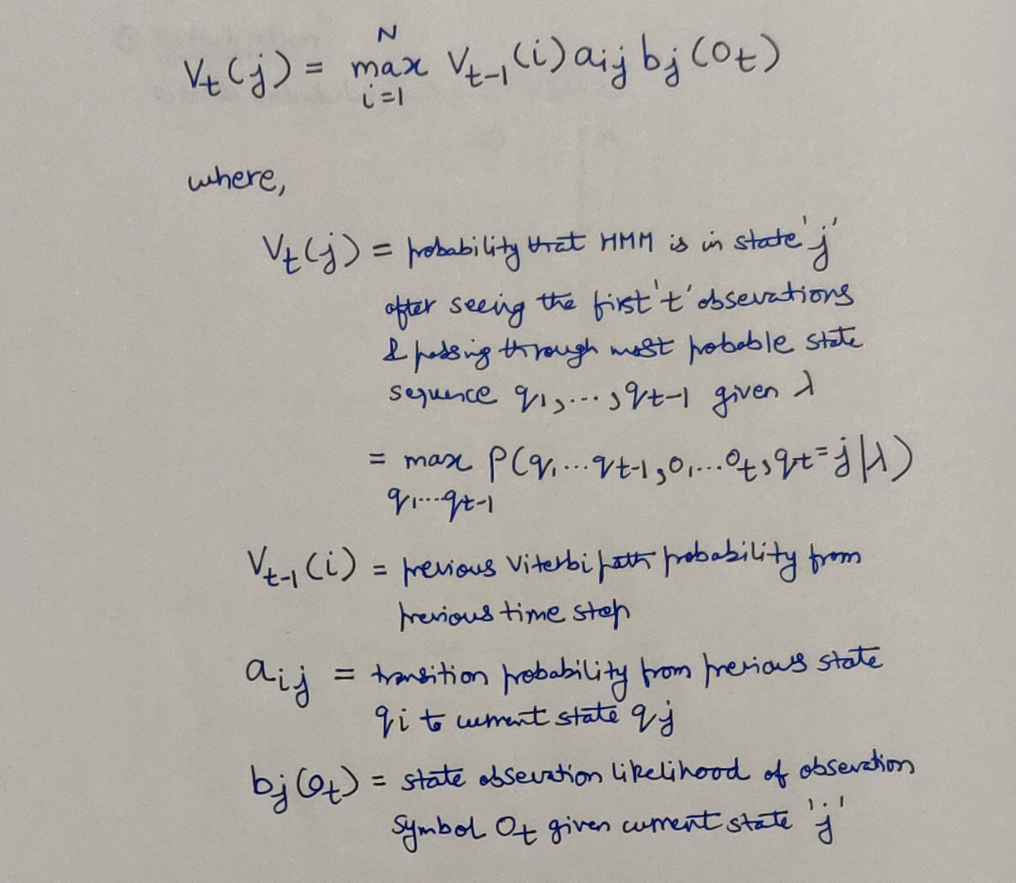 Vt(j) = max_{i=1}^{N} Vt-1(i) aij bj(ot)
where,
Vt(j) = probability that HMM is in state 'j'
after seeing the first 't' obsevations
& passing through most probable state
sequence q1,...,qt-1 given λ
= max P(q1...qt-1,o1...ot,qt=j|λ)
q1...qt-1
Vt-1(i) = previous Viterbi path probability from
previous time step
aij = transition probability from previous state
qi to current state qj
bj(ot) = state obsevation likelihood of obsevation
symbol Ot given current state 'j'